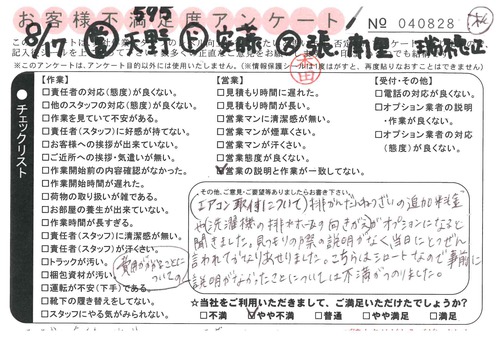 お客様不満足度アンケート
№ 040828
595
8/17 天野 安藤 張
※このアンケートは、アンケート目的以外には使用いたしません。
チェックリスト
【作業】
□責任者の対応(態度)が良くない。
□他のスタッフの対応(態度)が良くない。
□作業を見ていて不安がある。
□責任者(スタッフ)に好感が持てない。
□お客様への挨拶が出来ていない。
□ご近所への挨拶・気遣いが無い。
□作業開始前の内容確認がなかった。
□作業開始時間が遅れた。
□荷物の取り扱いが雑である。
□お部屋の養生が出来ていない。
□作業時間が長すぎる。
□責任者(スタッフ)に清潔感が無い。
□責任者(スタッフ)が汗くさい。
□トラックが汚い。
□梱包資材が汚い。
□運転が不安(下手)である。
□靴下の履き替えをしてない。
□スタッフにやる気がみられない。
【営業】
□見積もり時間に遅れた。
□見積もり時間が長い。
□営業マンに清潔感が無い。
□営業マンが煙草くさい。
□営業マンが汗くさい。
□営業態度が良くない。
☑営業の説明と作業が一致してない。
【受付・その他】
□電話の対応が良くない。
□オプション業者の説明
・作業が良くない。
□オプション業者の対応
(態度)が良くない。
その他、ご意見・ご要望等ありましたらお書き下さい。
(エアコン取付について) 排かんだんねつざいの追加料金
や洗濯機の排水ホースの向きがオプションになると
聞きました。見つもりの際の説明がなく、当日にとつぜん
言われてかなりあせりました。こちらはシロートなので事前に
説明がなかったことについては不満がつのりました。
費用がかかることについての
☆当社をご利用いただきまして、ご満足いただけてでしょうか?
□不満 ☑やや不満 □普通 □やや満足 □満足